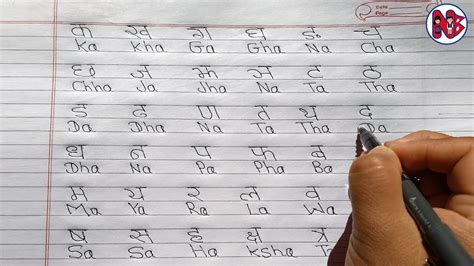 Date
Page
NB
क ख ग घ ङ च
Ka Kha Ga Gha Na Cha
छ ज झ ञ ट ठ
Chha Ja Jha Na Ta Tha
ड ढ ण त थ द
Da Dha Na Ta Tha Da
ध न प फ ब
Dha Na Pa Pha Ba
म य र ल व
Ma Ya Ra La Wa
ष स ह क्ष त्र
Sa Sa Ha Ksha